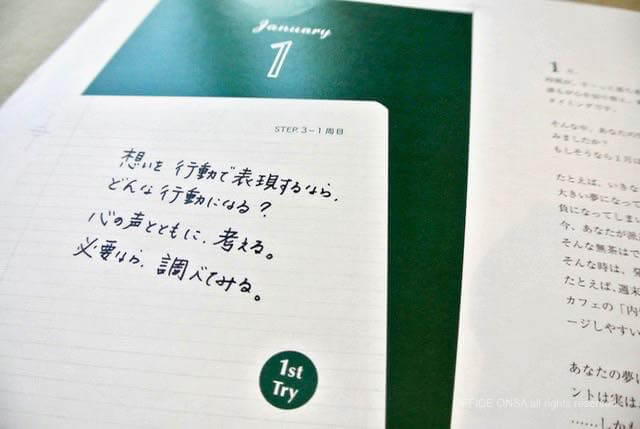 January
1
STEP. 3-1 周目
想いを 行動で表現するなら、
どんな行動になる？
心の声とともに、考える。
必要なら、調べてみる。
1st
Try
1
そんな中、あなたの
みましたか？
もしそうなら1月は
たとえば、いきな
大きい夢になって
負になってしまい
今、あなたが派
そんな無茶はで
そんな時は、発
たとえば、週末
カフェの「内
ージしやすい
あなたの夢に
ントは実は、
……しかも
OFFICE ONSA all rights reserved